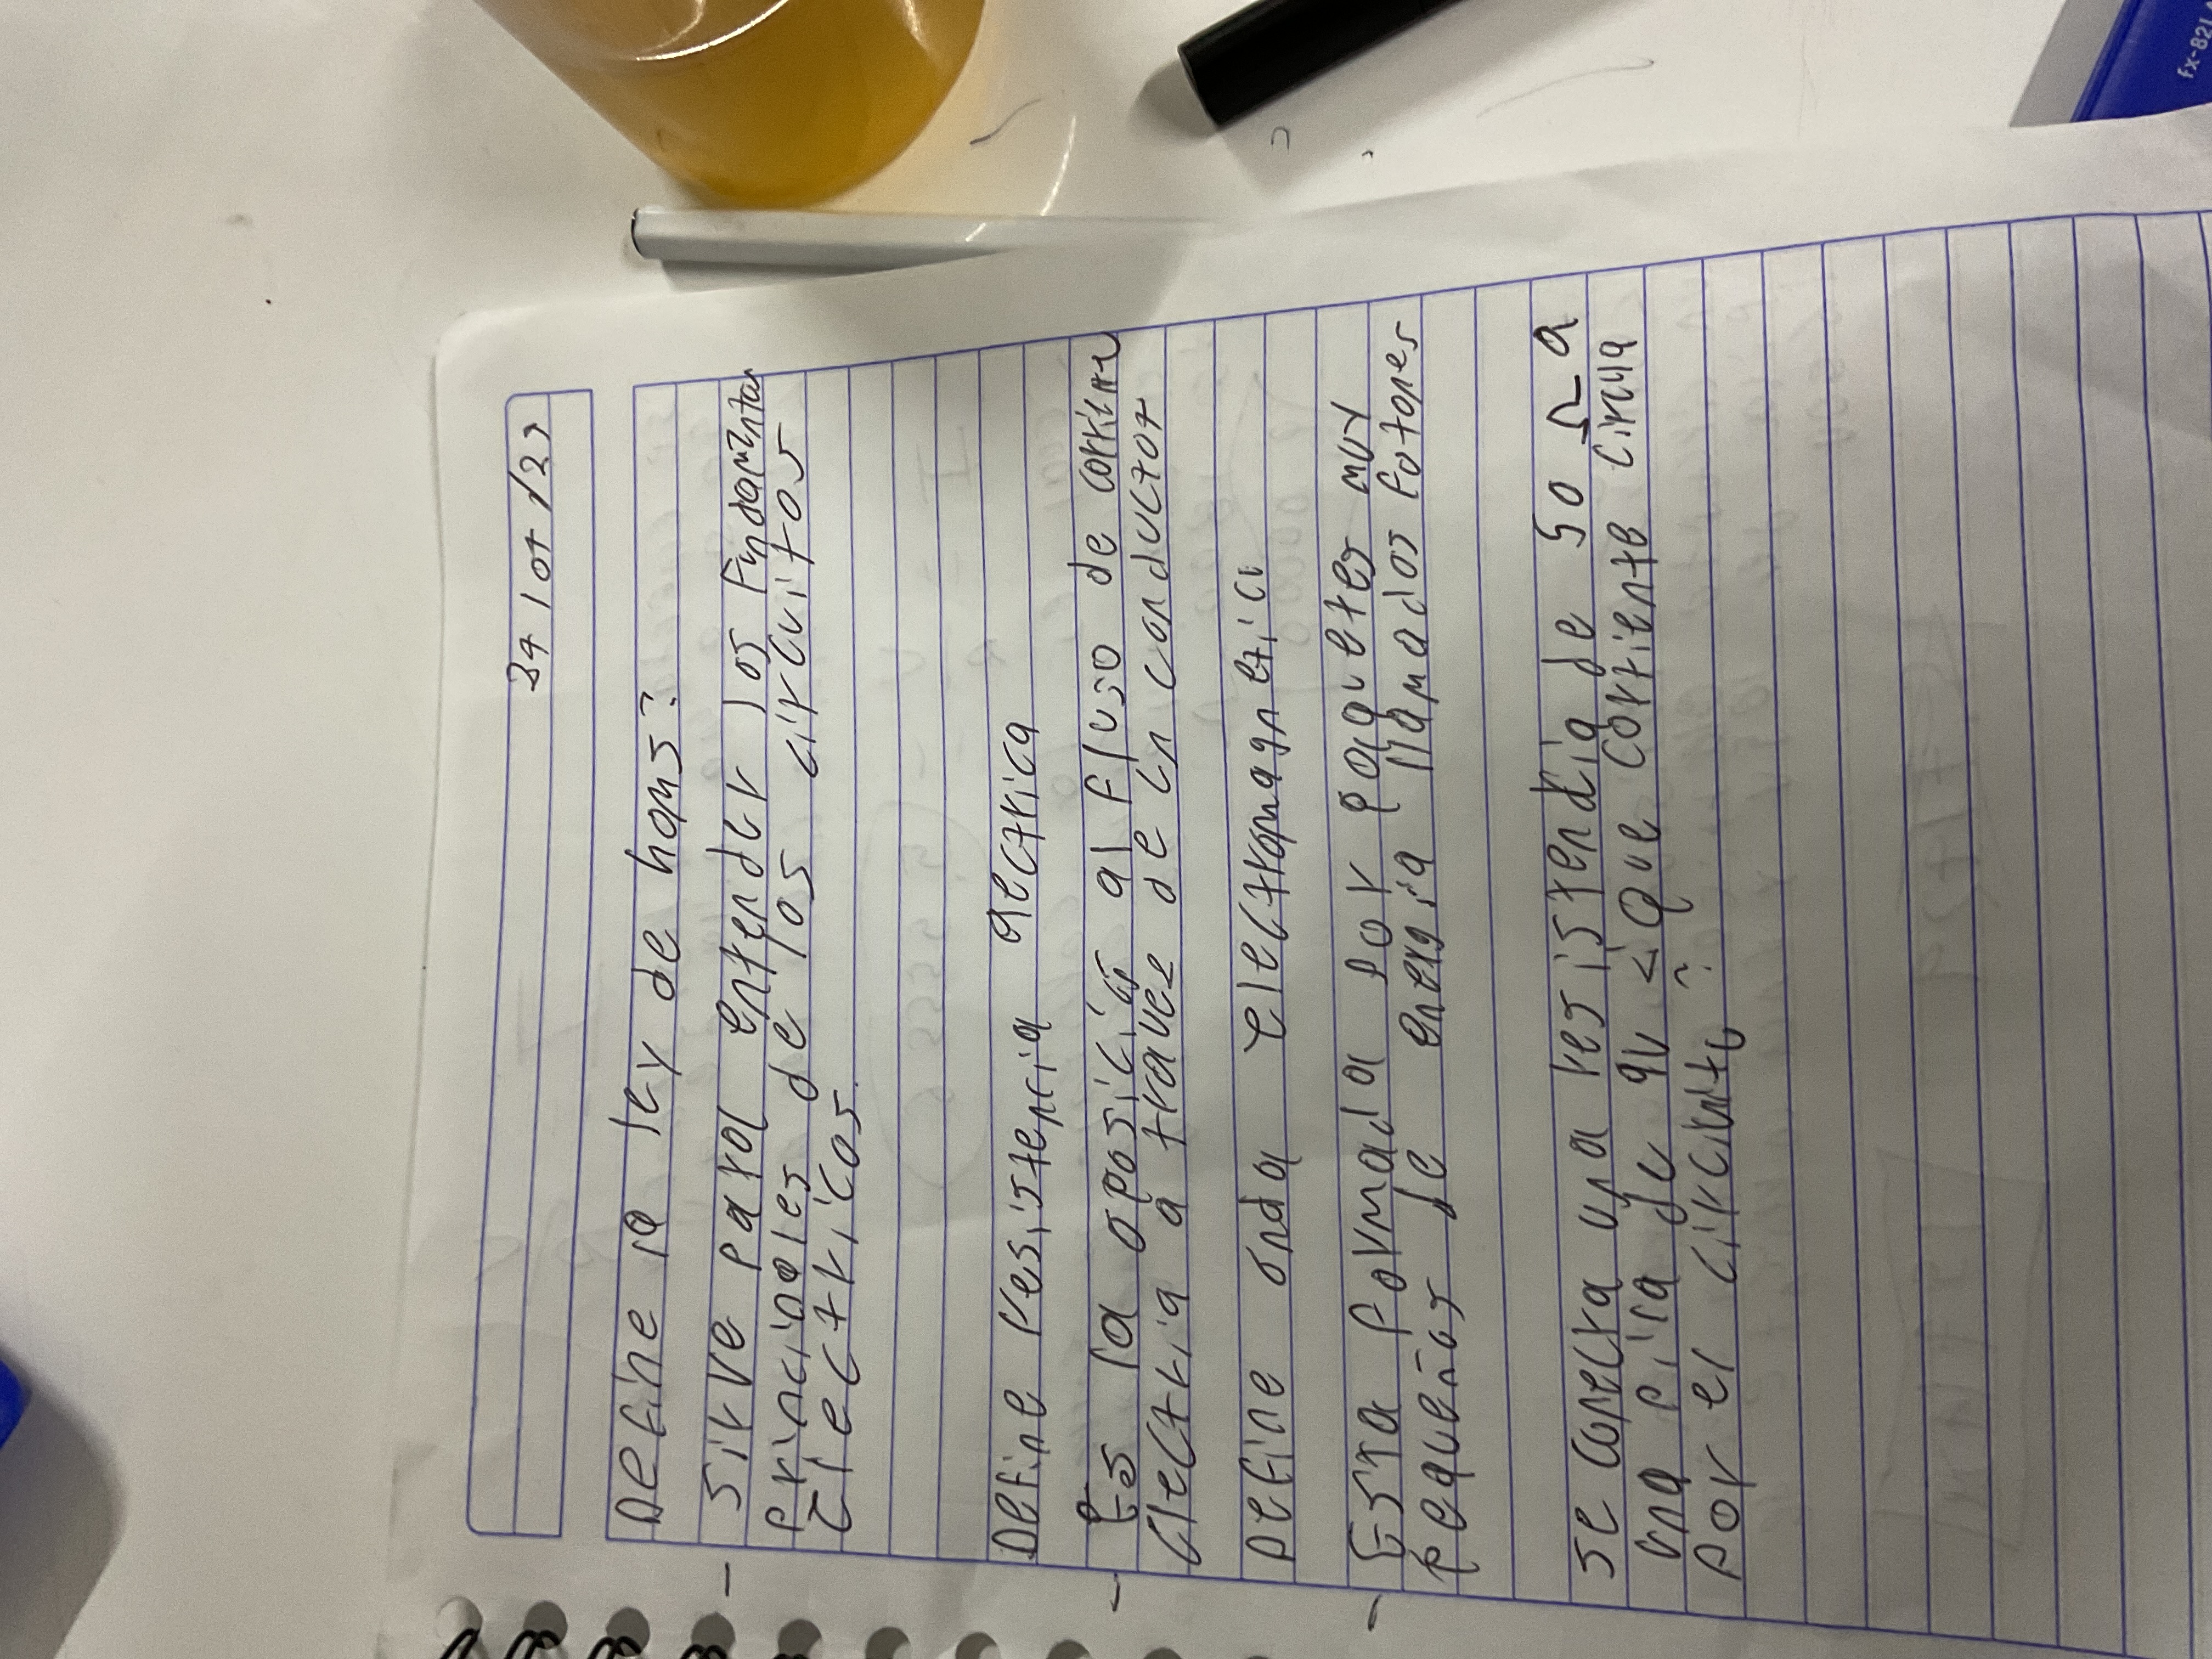 24 10t /23
Define la ley de homs?
Sirve para entender los Fundamentos
principales de los circuitos
electricos.
Define resistencia electrica
Es la oposición al fluso de corriente
electria a travez de un conductor
Define onda electromagnetica
Esta formada por paquetes muy
pequeños de energia llamados fotones
se conecta una resistencia de 50 Ω a
una pila de 9v ¿Que corriente circula
por el circuito?
fx-82LA